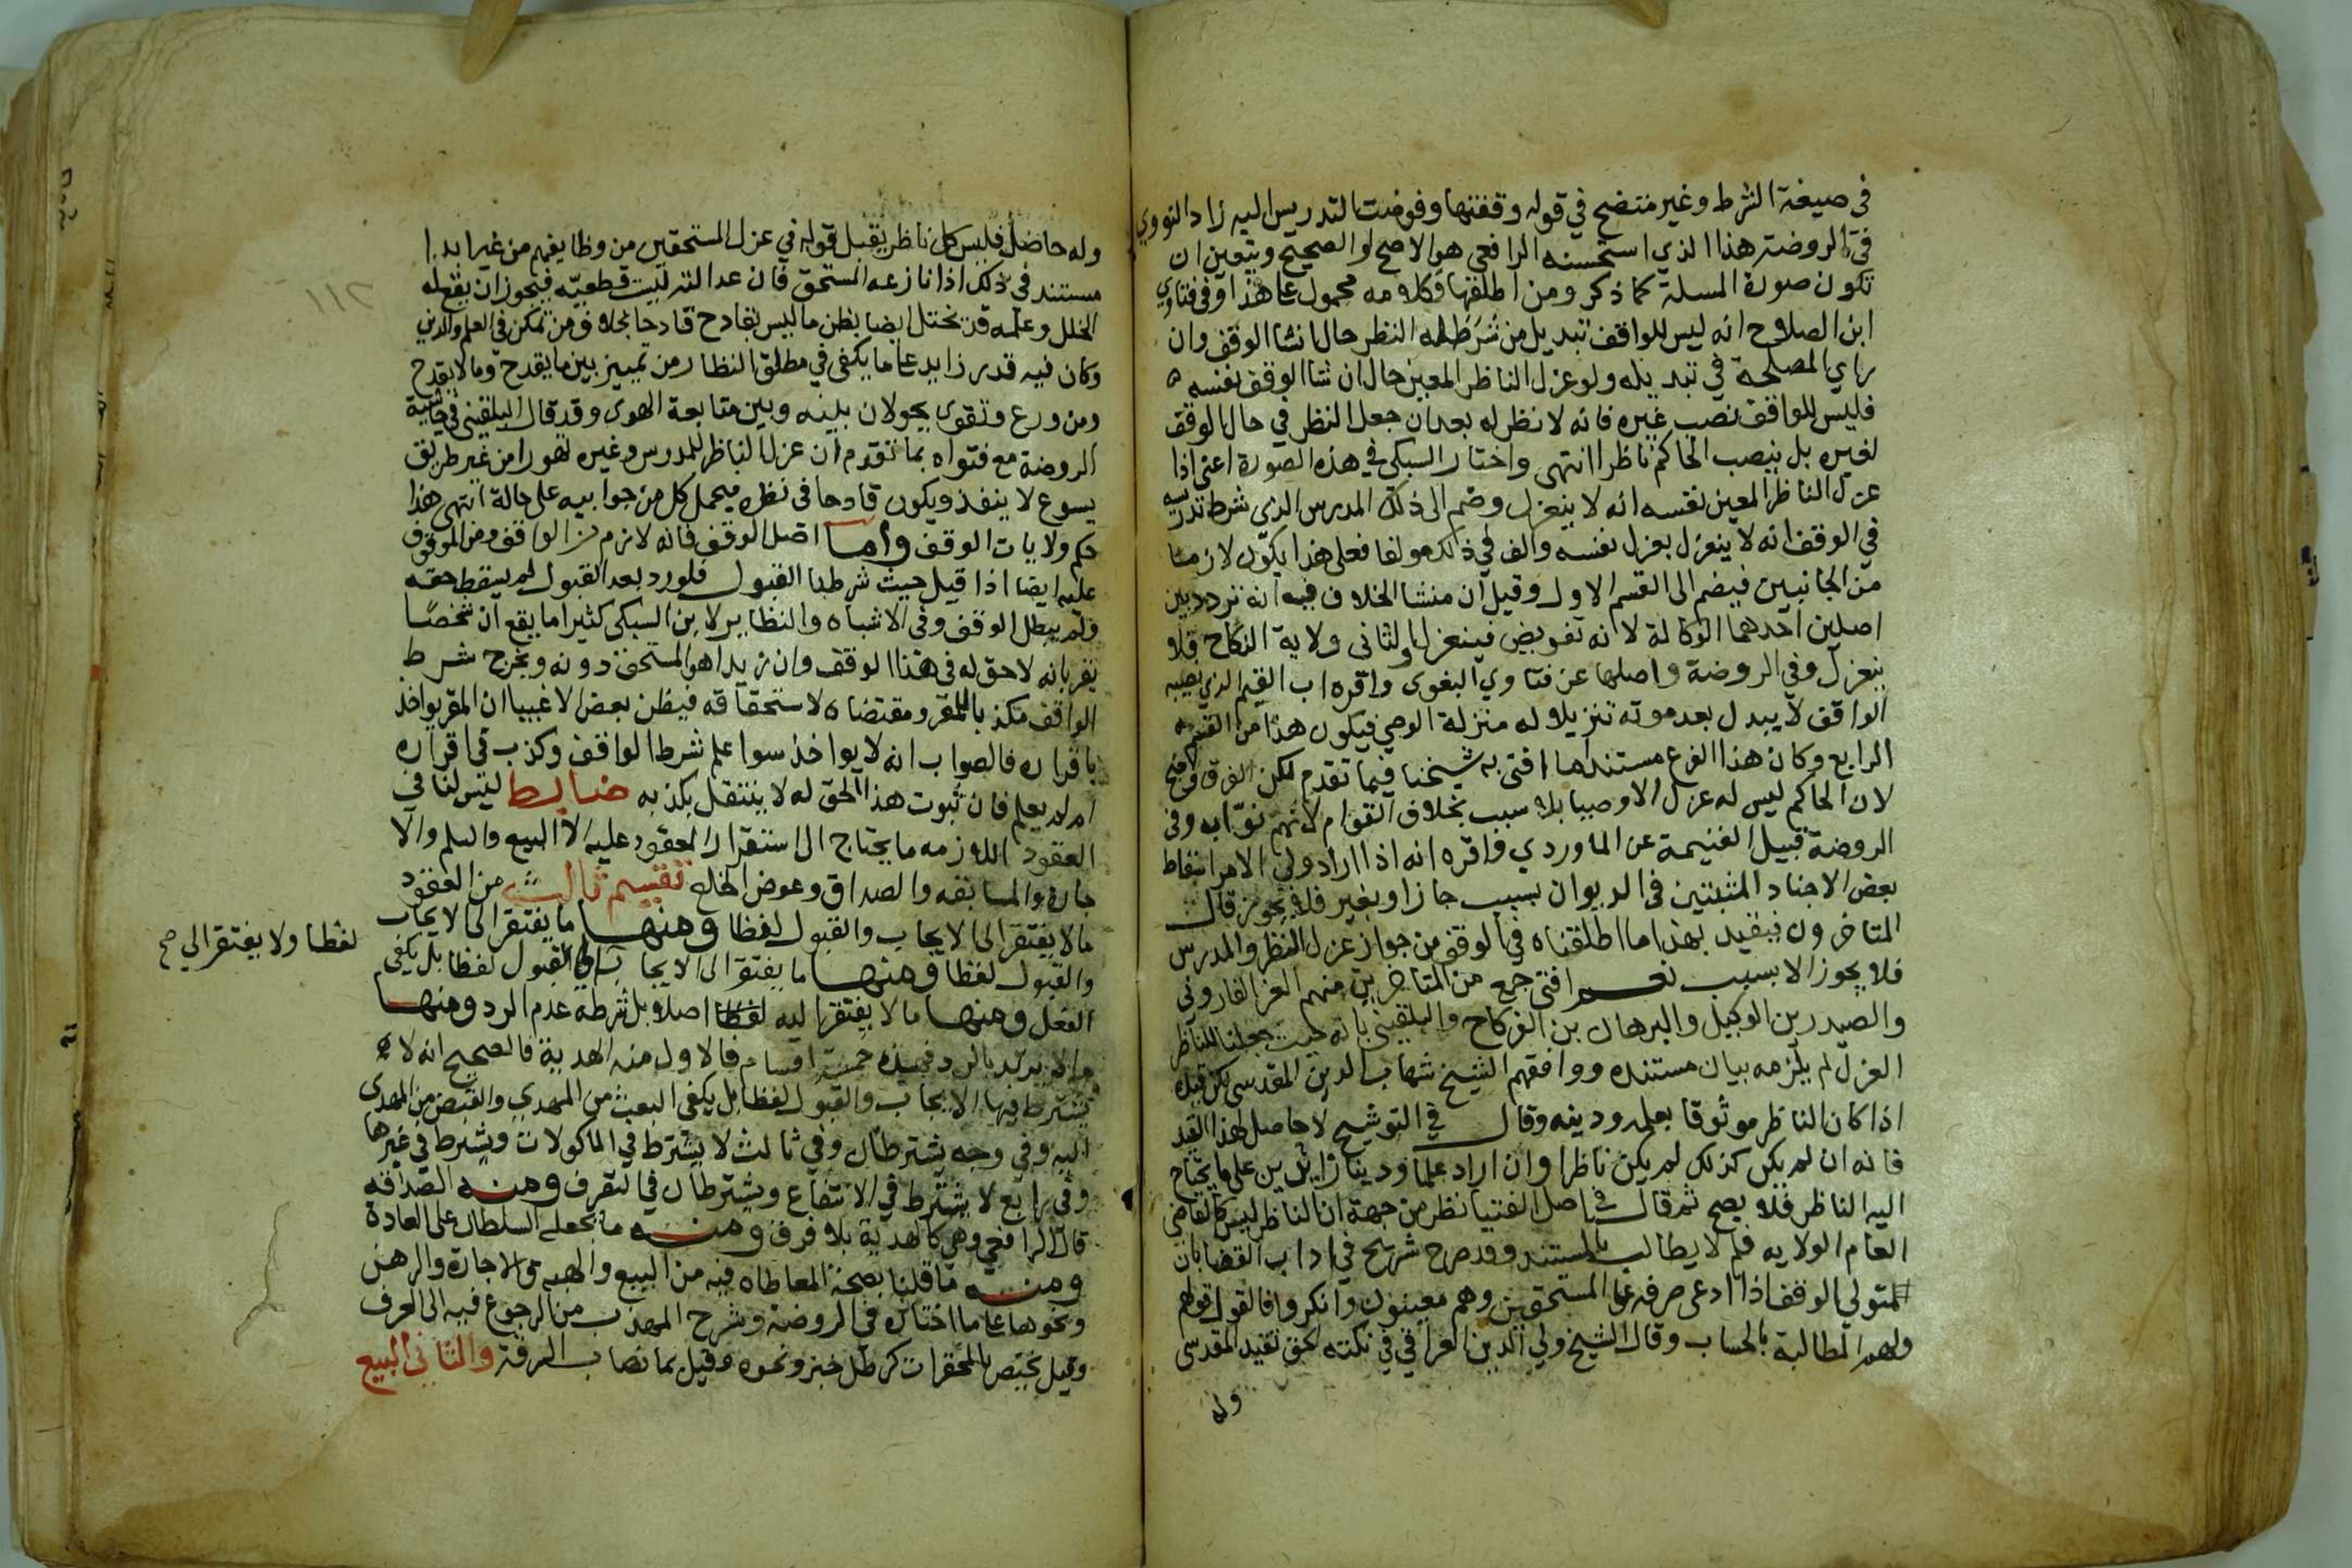 في صيغة الشرط وغير متضح في قوله وقفتها وفوضت التدريس اليه زاد النووي
في الروضة هذا الذي استحسنه الرافعي هو الاصح او الصحيح ويتعين ان
تكون صورة المسلة كما ذكر ومن اطلقها فكلامه محمول على هذا وفي فتاوي
ابن الصلاح انه ليس للواقف تبديل من شرط له النظر حال انشا الوقف وان
راي المصلحة في تبديله ولو عزل الناظر المعين حال انشا الوقف نفسه
فليس للواقف نصب غيره فانه لا نظر له بعد ان جعل النظر في حال الوقف
لغيره بل ينصب الحاكم ناظرا انتهى واختار السبكي في هذه الصورة اعني اذا
عزل الناظر المعين نفسه انه لا ينعزل وضم الى ذلك المدرس الذي شرط تدريسه
في الوقف انه لا ينعزل بعزل نفسه والف في ذلك مولفا فعلى هذا يكون لازما
من الجانبين فيضم الى القسم الاول وقيل ان منشا الخلاف فيه انه تردد بين
اصلين احدهما الوكالة لانه تفويض فينعزل والثاني ولاية النكاح فلا
ينعزل وفي الروضة واصلها عن فتاوي البغوى واقره اب القيم الذي نصبه
الواقف لا يبدل بعد موته تنزيلا له منزلة الوصي فيكون هذا من القسم
الرابع وكان هذا الفرع مستندما افتى به شيخنا فيما تقدم لكن الفرق
لان الحاكم ليس له عزل الاوصيا بلا سبب بخلاف القوام لانهم نوابه وفي
الروضة قبيل الغنيمة عن الماوردي واقره انه اذا اراد ولي الامر اسقاط
بعض الاجناد المثبتين في الديوان بسبب جاز او بغير فلا يجوز قال
المتاخرون فيقيد بهذا ما اطلقناه في الوقف من جواز عزل النظر والمدرس
فلا يجوز الا بسبب نعم افتى جمع من المتاخرين منهم العز الفاروثي
والصدر بن الوكيل والبرهان بن الفركاح والبلقيني بانه حيث جعلنا للناظر
العزل لم يلزمه بيان مستنده ووافقهم الشيخ شهاب الدين المقدسي لكن قيده
اذا كان الناظر موثوقا بعلمه ودينه وقال في التوشيح لا حاصل لهذا القيد
فانه ان لم يكن كذلك لم يكن ناظرا وان اراد علما ودينا زائدين على ما يحتاج
اليه الناظر فلا يصح ثم قال في اصل الفتيا نظر من جهة ان الناظر ليس كالقاضي
العام الولايه فلم لا يطالب بالمستند وقد صرح شريح في اداب القضا بان
لمتولي الوقف اذا ادعى صرفه على المستحقين وهم معينون وانكروا فالقول قولهم
ولهم المطالبة بالحساب وقال الشيخ ولي الدين العراقي في نكته لحق تقييد المقدسي
وله
وله حاصل فليس كل ناظر يقبل قوله في عزل المستحقين من وظايفهم من غير ابدا
مستند في ذلك اذا نازعه المستحق فان عدالته ليست قطعيه فيجوز ان يقع له
الخلل وعلمه قد يختل ايضا بظن ما ليس بقادح قادحا بخلاف من تمكن في العلم والدين
وكان فيه قدر زايد على ما يكفي في مطلق النظار من تمييز بين ما يقدح وما لا يقدح
ومن ورع وتقوى يحولان بينه وبين متابعة الهوى وقد قال البلقيني في حاشية
الروضة مع فتواه بما تقدم ان عزل الناظر للمدرس وغيره تهورا من غير طريق
يسوغ لا ينفذ ويكون قادحا في نظره فيحمل كل من جوابيه على حالة انتهى هذا
حكم ولايات الوقف واما اصل الوقف فانه لازم من الواقف ومن الموقوف
عليه ايضا اذا قبل حيث شرطنا القبول فلورد بعد القبول لم يسقط حقه
ولم يبطل الوقف وفي الاشباه والنظاير لابن السبكي كثيرا ما يقع ان شخصا
يقر بانه لا حق له في هذا الوقف وان زيدا هو المستحق دونه ويخرج شرط
الواقف مكذبا للمقر ومقتضاه لاستحقاقه فيظن بعض الاغبيا ان المقر يواخذ
باقراره فالصواب انه لا يواخذ سوا علم شرط الواقف وكذب في اقراره
ام لم يعلم فان ثبوت هذا الحق له لا ينتقل بكذبه ضابط ليس لنا في
العقود اللازمه ما يحتاج الى استقرار المعقود عليه الا البيع والسلم والا
جارة والمسابقه والصداق وعوض الخلع تقسيم ثالث من العقود
ما لا يفتقر الى الايجاب والقبول لفظا ومنها ما يفتقر الى الايجاب
لفظا ولا يفتقر الى صح
والقبول لفظا ومنها ما يفتقر الى الايجاب القبول لفظا بل يكفي
الفعل ومنها ما لا يفتقر اليه لفظا اصلا بل شرطه عدم الرد ومنها
ما لا يرتد بالرد فهذه خمسة اقسام فالاول منه الهدية فالصحيح انه لا
يشترط فيها الايجاب والقبول لفظا بل يكفي البعث من المهدي والقبض من المهدى
اليه وفي وجه يشترطان وفي ثالث لا يشترط في الماكولات ويشترط في غيرها
وفي رابع لا يشترط في الانتفاع ويشترطان في التصرف ومنه الصدقة
قال الرافعي وهي كالهدية بلا فرق ومنه ما يجعله السلطان على العادة
ومنه ما قلنا بصحة المعاطاه فيه من البيع والهبة والاجارة والرهن
ونحوها على ما اختاره في الروضة وشرح المهذب من الرجوع فيه الى العرف
وقيل يختص بالمحقرات كرطل خبز ونحوه وقيل بما نصاب السرقة والثاني البيع